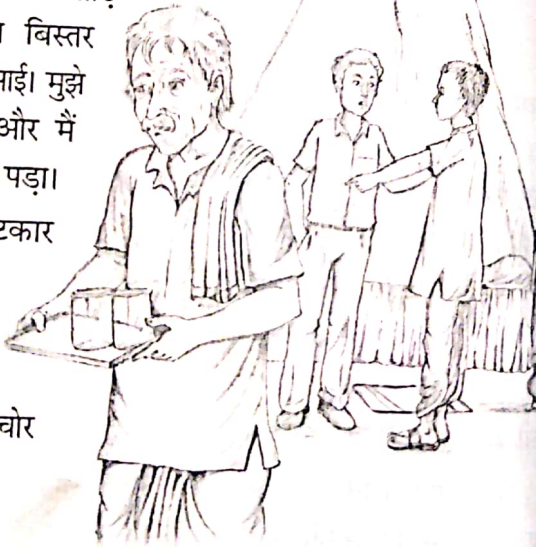 बिस्तर
आई। मुझे
और मैं
पड़ा।
चोर